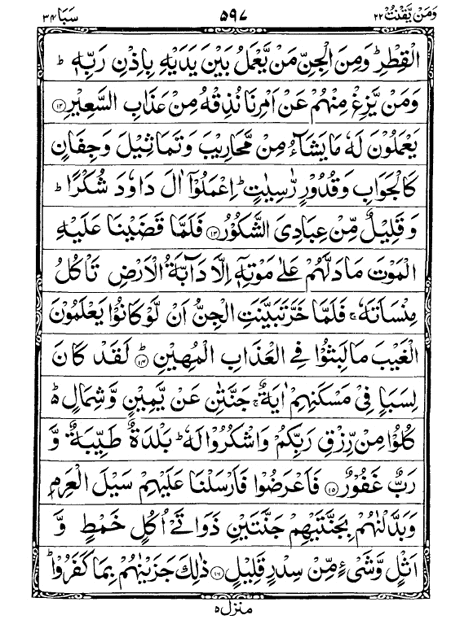 وَمَنْ يَّقْنُتْ ٢٢ ٥٩٧ سَبَا ٣٤
الْقِطْرِ ؕ وَمِنَ الْجِنِّ مَنْ يَّعْمَلُ بَيْنَ يَدَيْهِ بِاِذْنِ رَبِّهٖ ؕ
وَمَنْ يَّزِغْ مِنْهُمْ عَنْ اَمْرِنَا نُذِقْهُ مِنْ عَذَابِ السَّعِيْرِ ﴿١٢﴾
يَعْمَلُوْنَ لَهٗ مَا يَشَآءُ مِنْ مَّحَارِيْبَ وَ تَمَاثِيْلَ وَجِفَانٍ
كَالْجَوَابِ وَقُدُوْرٍ رّٰسِيٰتٍ ؕ اِعْمَلُوْٓا اٰلَ دَاوٗدَ شُكْرًا ؕ
وَ قَلِيْلٌ مِّنْ عِبَادِيَ الشَّكُوْرُ ﴿١٣﴾ فَلَمَّا قَضَيْنَا عَلَيْهِ
الْمَوْتَ مَا دَلَّهُمْ عَلٰى مَوْتِهٖٓ اِلَّا دَآبَّةُ الْاَرْضِ تَاْكُلُ
مِنْسَاَتَهٗ ۚ فَلَمَّا خَرَّ تَبَيَّنَتِ الْجِنُّ اَنْ لَّوْ كَانُوْا يَعْلَمُوْنَ
الْغَيْبَ مَا لَبِثُوْا فِي الْعَذَابِ الْمُهِيْنِ ؕ ﴿١٤﴾ لَقَدْ كَانَ
لِسَبَاٍ فِيْ مَسْكَنِهِمْ اٰيَةٌ ۚ جَنَّتٰنِ عَنْ يَّمِيْنٍ وَّشِمَالٍ ؕ۬
كُلُوْا مِنْ رِّزْقِ رَبِّكُمْ وَاشْكُرُوْا لَهٗ ؕ بَلْدَةٌ طَيِّبَةٌ وَّ
رَبٌّ غَفُوْرٌ ﴿١٥﴾ فَاَعْرَضُوْا فَاَرْسَلْنَا عَلَيْهِمْ سَيْلَ الْعَرِمِ
وَبَدَّلْنٰهُمْ بِجَنَّتَيْهِمْ جَنَّتَيْنِ ذَوَاتَيْ اُكُلٍ خَمْطٍ وَّ
اَثْلٍ وَّشَيْءٍ مِّنْ سِدْرٍ قَلِيْلٍ ﴿١٦﴾ ذٰلِكَ جَزَيْنٰهُمْ بِمَا كَفَرُوْا ؕ
منزل ٥